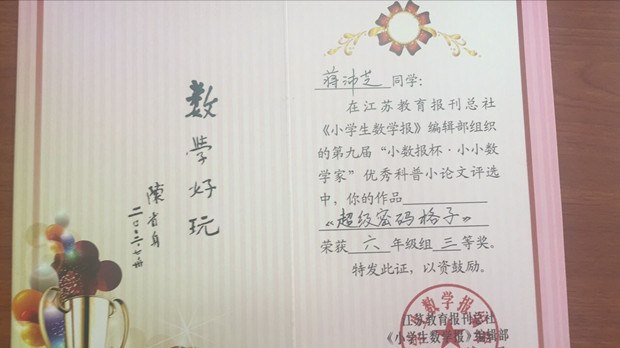 数學好玩
陳省身
二〇〇二.七.卅
蒋沛芝 同学：
在江苏教育报刊总社
《小学生数学报》编辑部组织
的第九届“小数报杯·小小数
学家”优秀科普小论文评选
中，你的作品
《超级密码格子》
荣获 六 年级组 三 等奖。
特发此证，以资鼓励。
数学报
江苏教育报刊总社
《小学生数学报》编辑部